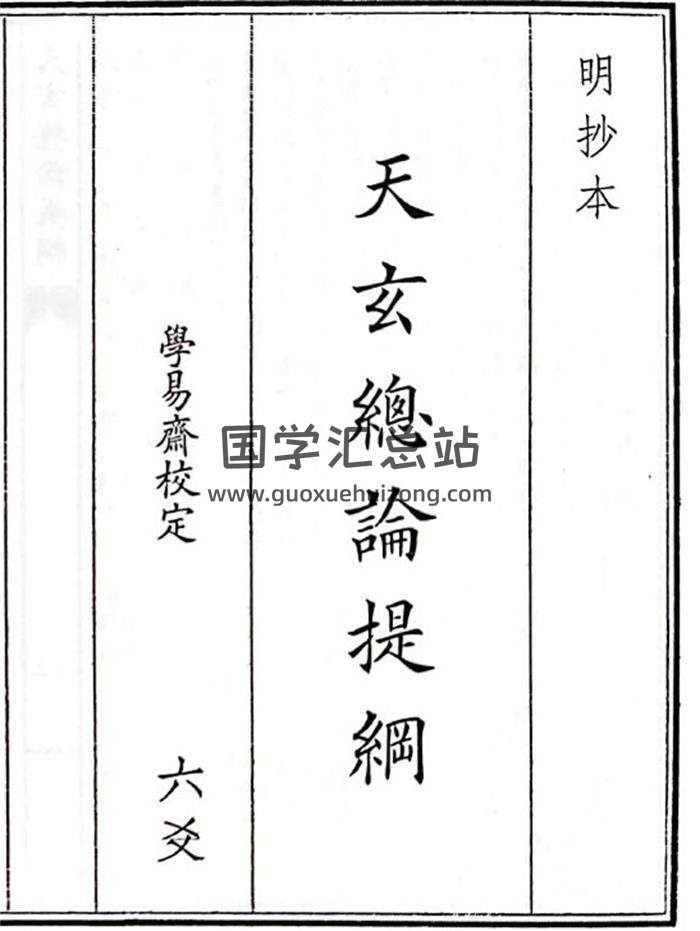 明抄本
天玄總論提綱
學易齋校定
六爻
国学汇总站
www.guoxuehuizong.com